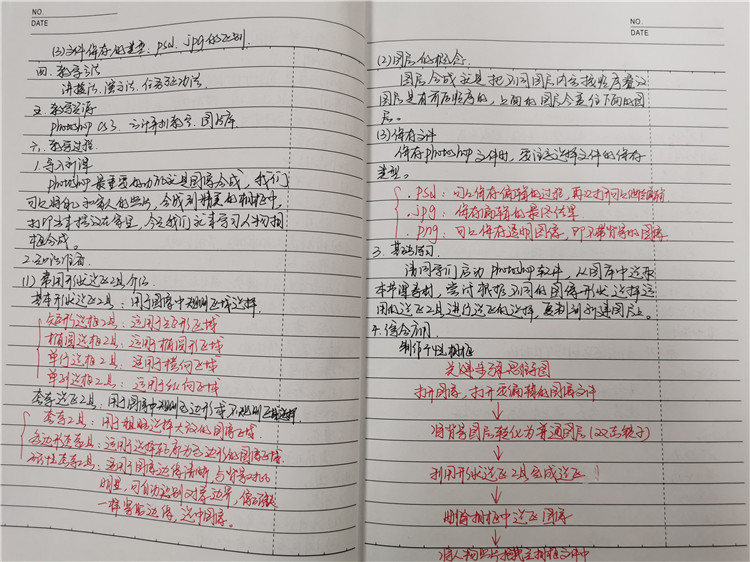 NO.
DATE
(3)文件保存的类型:psd、jpg的区别
四、教学方法
讲授法、演示法、任务驱动法
五、教学资源
photoshop CS3、云计算机教室、图片库
六、教学过程
1.导入新课
photoshop最重要的功能就是图像合成,我们
可以将自己和家人的照片,合成到精美的相框中,
打印出来摆放在家里,今天我们就来学习人物相
框合成。
2.
(1)常用形状选区工具介绍
基本形状选区工具:用于图像中规则区域选择
矩形选框工具:适用于矩形区域
椭圆选框工具:适用于椭圆形区域
单行选框工具:适用于横向区域
单列选框工具:适用于纵向区域
套索选区工具:用于图像中规则多边形或不规则区域选择
套索工具:用于粗略选择大致的图像区域
多边形套索工具:适用选择轮廓为多边形的图像区域
磁性套索工具:适用于图像边缘清晰、与背景对比
明显,可自动识别对象边界,像磁铁
一样紧贴边缘,选中图像。
NO.
DATE
(2)图层的概念
图层合成就是把不同图层内容按顺序叠放
图层是有前后顺序的,上面的图层会遮住下面的图
层。
(3)保存文件
保存photoshop文件时,要注意选择文件的保存
类型。
.psd:可以保存编辑的过程,再次打开可以继续编辑
.jpg:保存编辑的最终结果
.png:可以保存透明图像,即不带背景的图像
3.基础学习
请同学们启动photoshop软件,从图库中选取
本节课素材,尝试根据不同的图像形状选择适
用的选区工具进行选区的选择,复制到新建图层上。
4.综合应用
制作个性相框
关键步骤思维导图
打开图库,打开要编辑的图像文件
将背景图层转化为普通图层(双击锁子)
利用形状选区工具完成选区
删除相框中选区图像
将人物照片拖拽至相框文件中